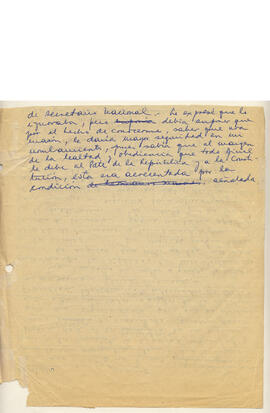 de Secretario Nacional.- Le expresé que lo
ignoraba, pero debía suponer que
por el hecho de conocerme, saber que era
masón, le daría mayor seguridad en mi
nombramiento, pues sabía que al margen
de la lealtad y obediencia que todo
le debe al Pdte de la República y a la Consti-
tución, esta era acrecentada por la
condición señalada